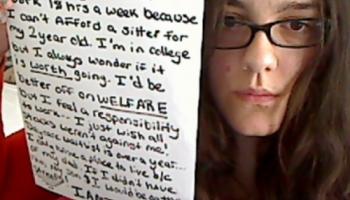 work 18 hrs a week because
I can't afford a sitter for
my 2 year old. I'm in college
but I always wonder if it
is worth going. I'd be
better off on WELFARE
but I feel a responsibility
to work... I just wish all
weren't against me!
is over a year...
a place to live b/c
of my dad. If I didn't have
I would be
I AM